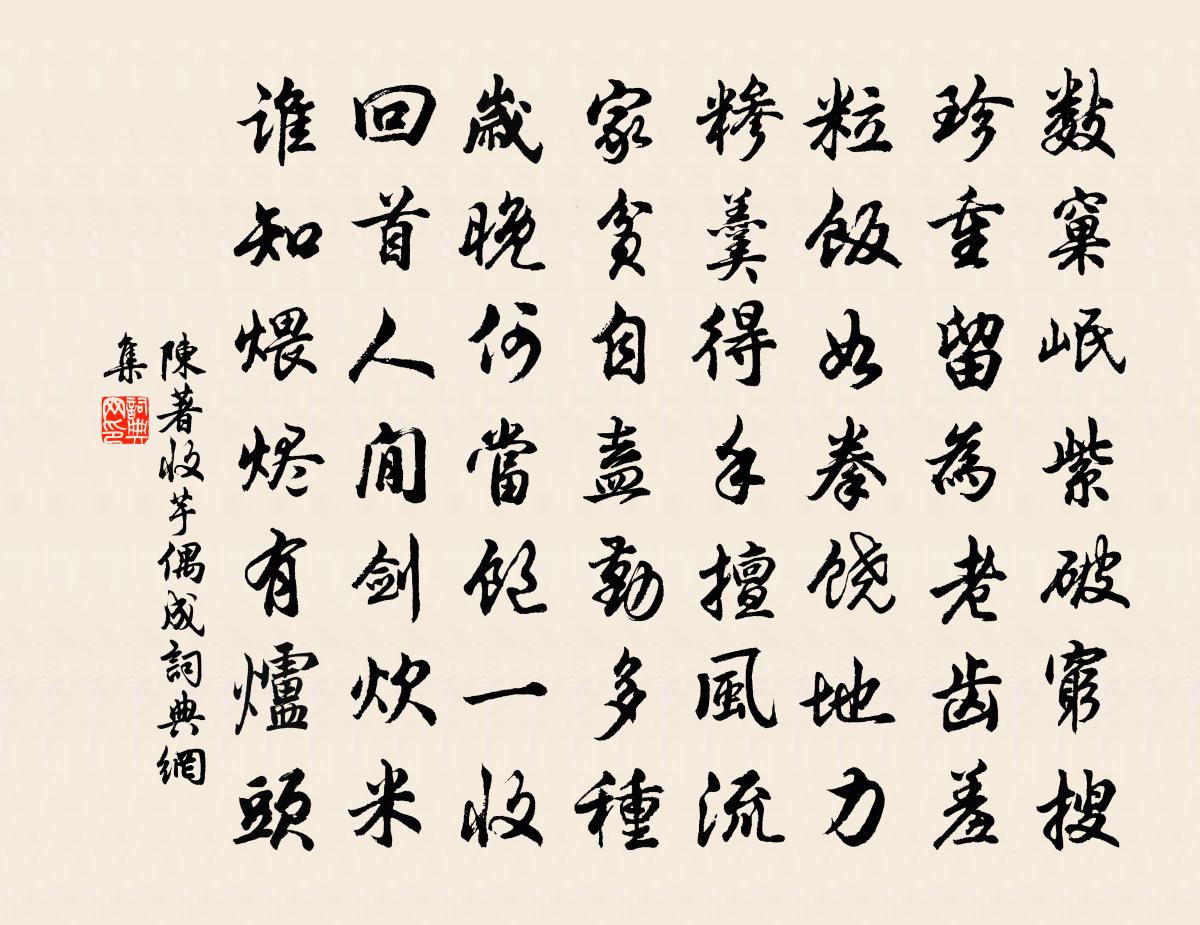 数窠岷紫破窮搜
珍重留為老齒羞
粒飯如拳饒地力
糝羹得手擅風流
家貧自盍勤多種
歲晚何當飽一收
回首人間劍炊米
誰知煨燼有爐頭
陳著收芋偶成詞典網
集
詞典網印